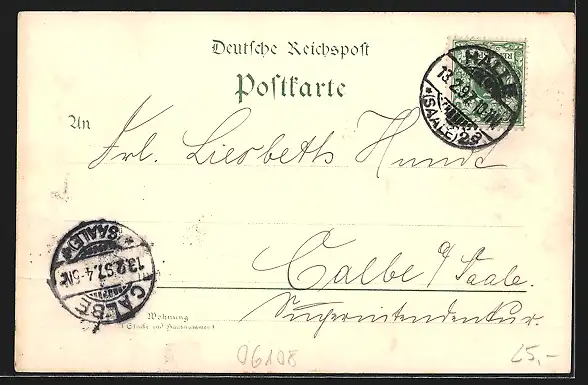 Deutsche Reichspost
Postkarte
An
Frl. Liesbeth Hundt
Calbe a/Saale.
Superintendentur.
Wohnung
(Straße und Hausnummer)
HALLE
13.2.97.
*(SAALE)2.
CALBE
13.2.97.4-5N
*(SAALE)*
06108
25,-